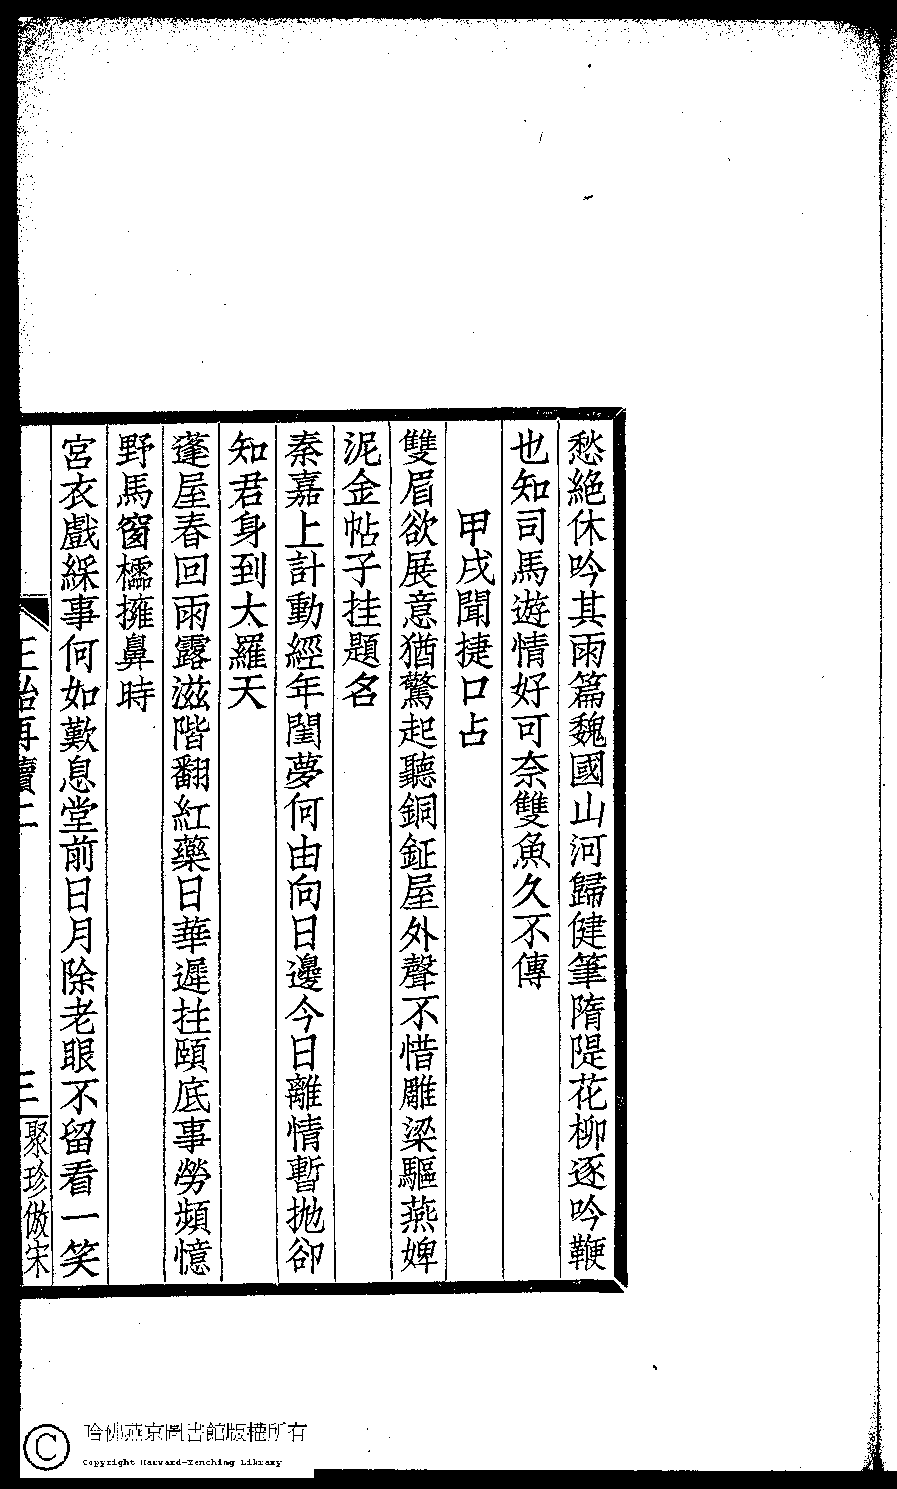 愁絕休吟其雨篇魏國山河歸健筆隋隄花柳逐吟鞭
也知司馬遊情好可奈雙魚久不傳
甲戌聞捷口占
雙眉欲展意猶驚起聽銅鉦屋外聲不惜雕梁驅燕婢
泥金帖子挂題名
秦嘉上計動經年閨夢何由向日邊今日離情暫拋卻
知君身到大羅天
蓬屋春回雨露滋階翻紅藥日華遲拄頤底事勞頻憶
野馬窗櫺擁鼻時
宮衣戲綵事何如歎息堂前日月除老眼不留看一笑
再續二
三
聚珍倣宋
哈佛燕京圖書館版權所有
Copyright Harvard-Yenching Library